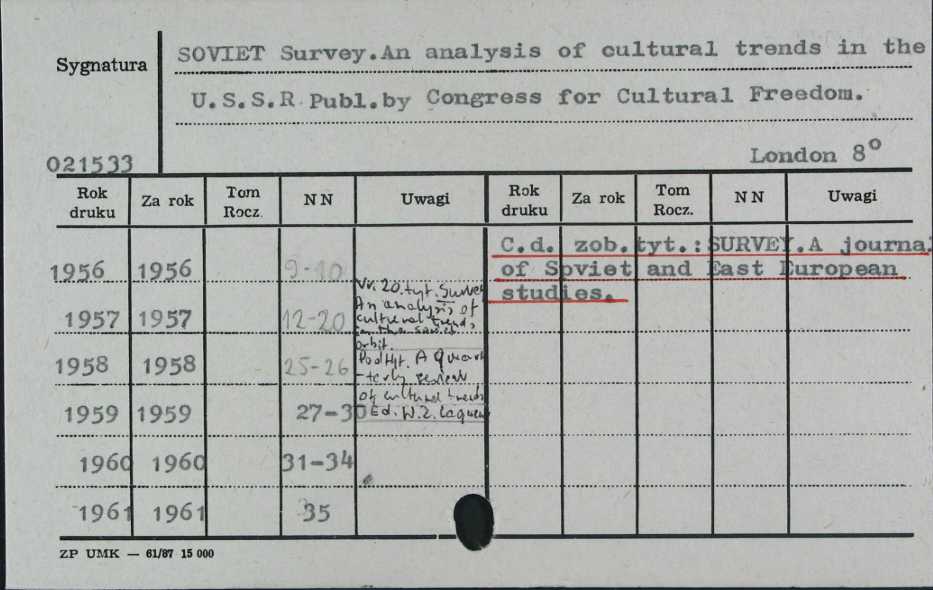 Sygnatura
SOVIET Survey.An analysis of cultural trends in the
U.S.S.R Publ.by Congress for Cultural Freedom.
021533
London 8°
Rok druku Za rok Tom Rocz. NN Uwagi Rok druku Za rok Tom Rocz. NN Uwagi
C.d. zob.tyt.:SURVEY.A journal
of Soviet and East European
studies.
1956 1956 9-10
1957 1957 12-20
1958 1958 25-26
1959 1959 27-30
1960 1960 31-34
1961 1961 35
Nr. 20. tyt. Survey
An analysis of
cultural trends
in the soviet
orbit.
Podtyt. A quar
-terly review
of cultural trends
Ed. W.Z. Laqueur
ZP UMK — 61/87 15 000